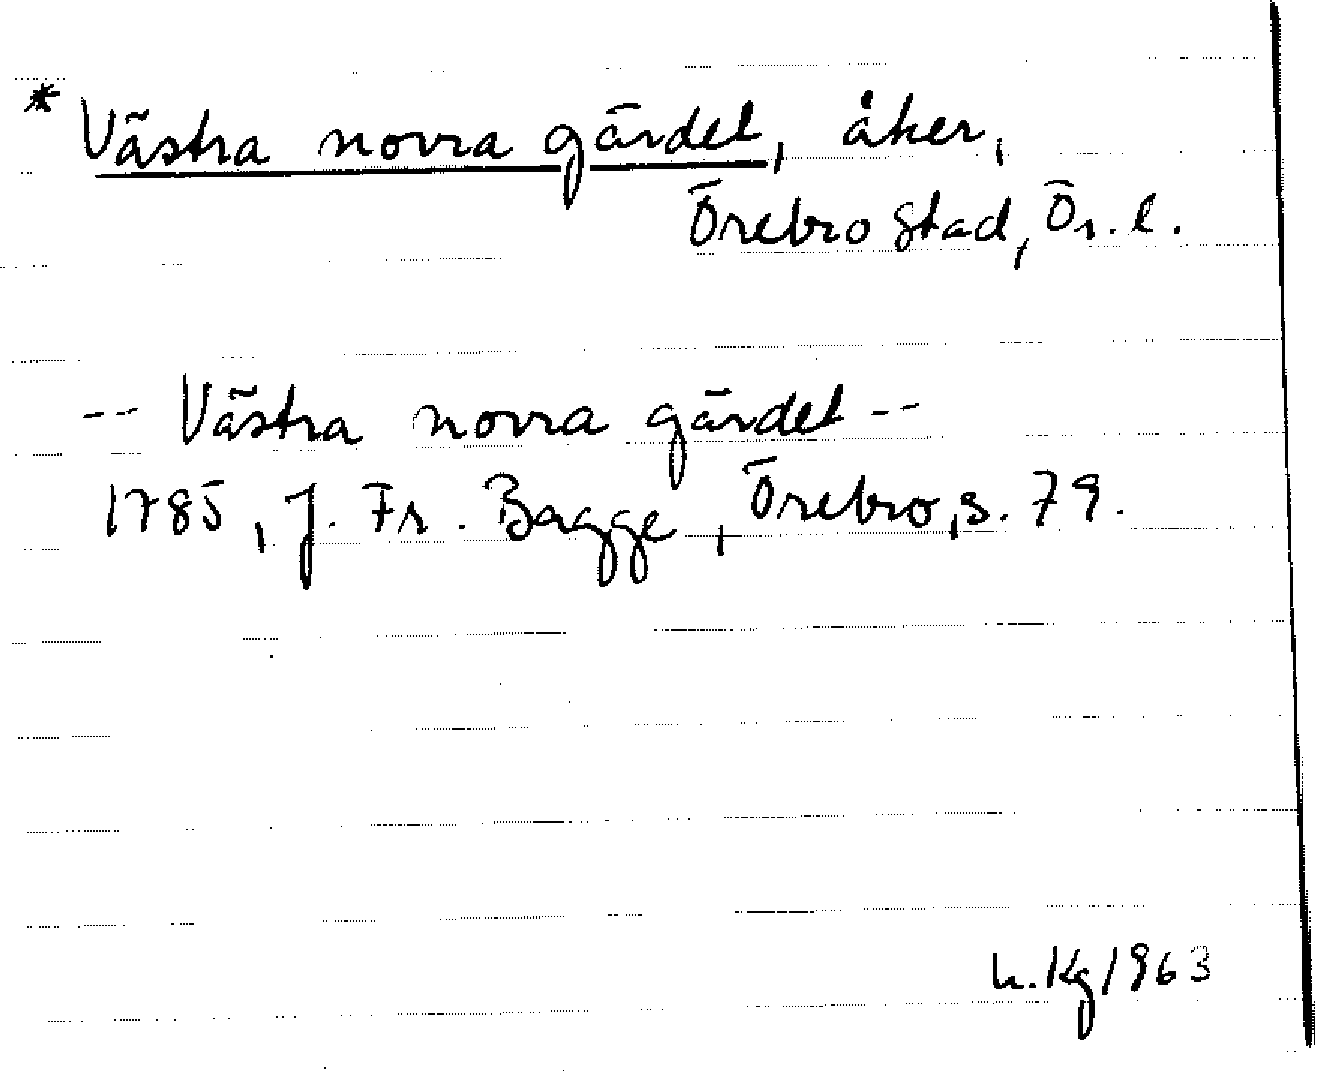 * Västra norra gärdet, åker,
Örebro stad, Ör. l.
-- Västra norra gärdet --
1785, J. Fr. Bagge, Örebro, s. 79.
h. Kg 1963